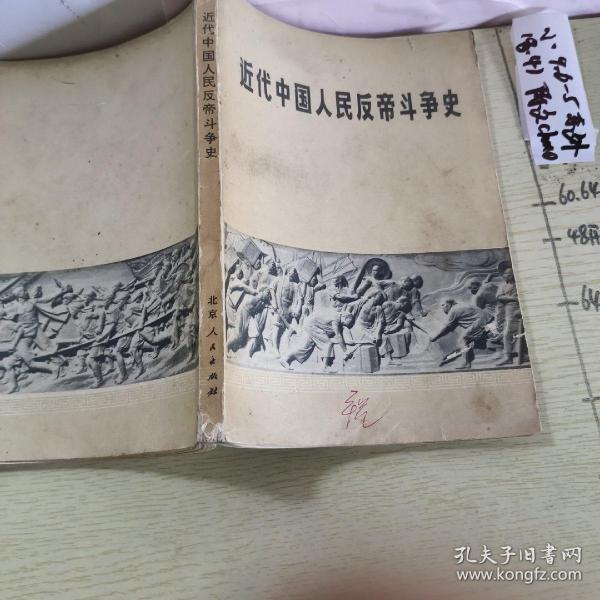 近代中国人民反帝斗争史
近代中国人民反帝斗争史
北京人民出版社
60.64
48开
64
孔夫子旧书网
www.kongfz.com